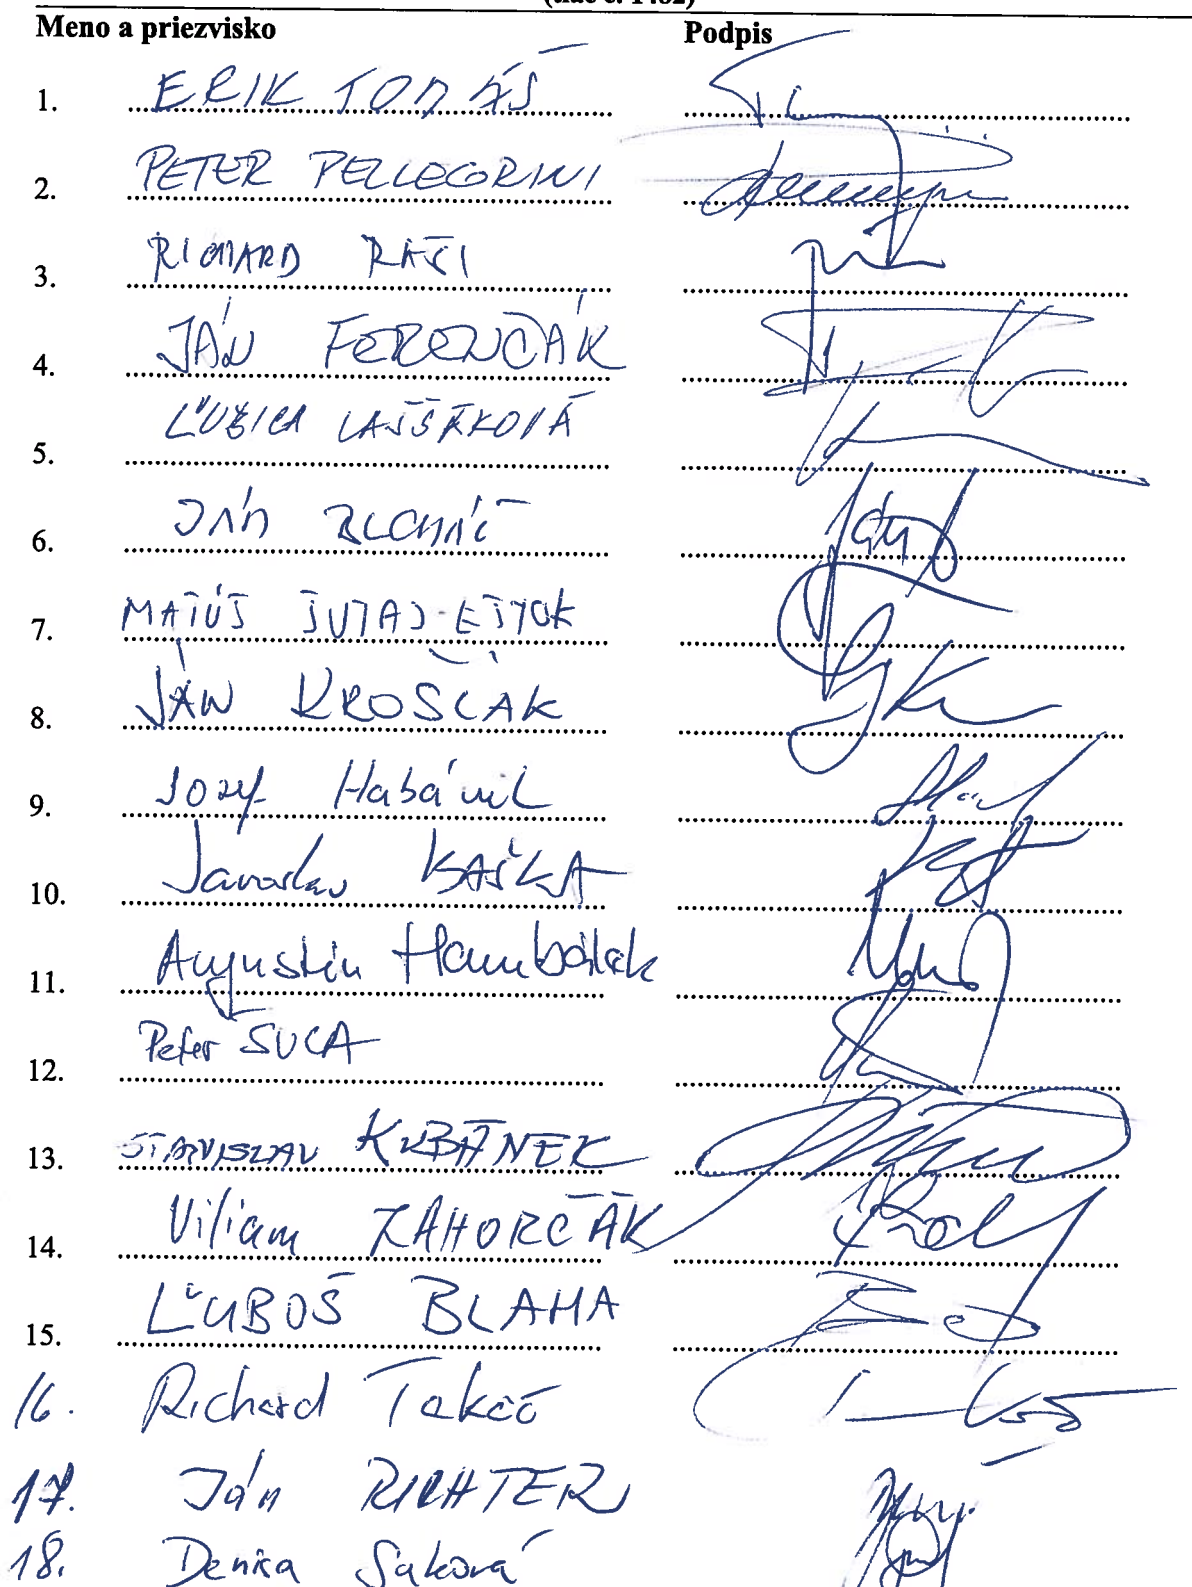 (tlač č. 1482)
Meno a priezvisko Podpis
1. ERIK TOMÁŠ
2. PETER PELLEGRINI
3. RICHARD RAŠI
4. JÁN FERENČÁK
5. ĽUBICA LAŠŠÁKOVÁ
6. JÁN BLCHÁČ
7. MATÚŠ ŠUTAJ-EŠTOK
8. JÁN KROŠČLÁK
9. Jozef Habánik
10. Jaroslav BAŠKA
11. Augustín Hambálek
12. Peter ŠUCA
13. STANISLAV KUBÁNEK
14. Viliam ZAHORČÁK
15. ĽUBOŠ BLAHA
16. Richard Takáč
17. Ján RICHTER
18. Denisa Saková